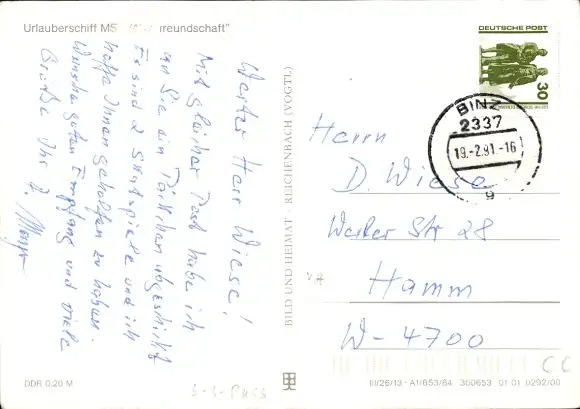 Urlauberschiff MS "Völkerfreundschaft"
Werter Herr Wiese!
Mit gleicher Post habe ich
an Sie ein Päckchen abgeschickt
Es sind 2 Skatspiele und ich
hoffe Ihnen geholfen zu haben.
Wünsche guten Empfang und viele
Grüße Ihr
DDR 0,20 M
BILD UND HEIMAT · REICHENBACH (VOGTL)
DEUTSCHE POST
30
BINZ
2337
19.-2.91.-16
g
Herrn
D. Wiese
Werler Str 28
Hamm
W-4700
III/26/13 · A1/853/84 300653 01 01 0292/00
CC